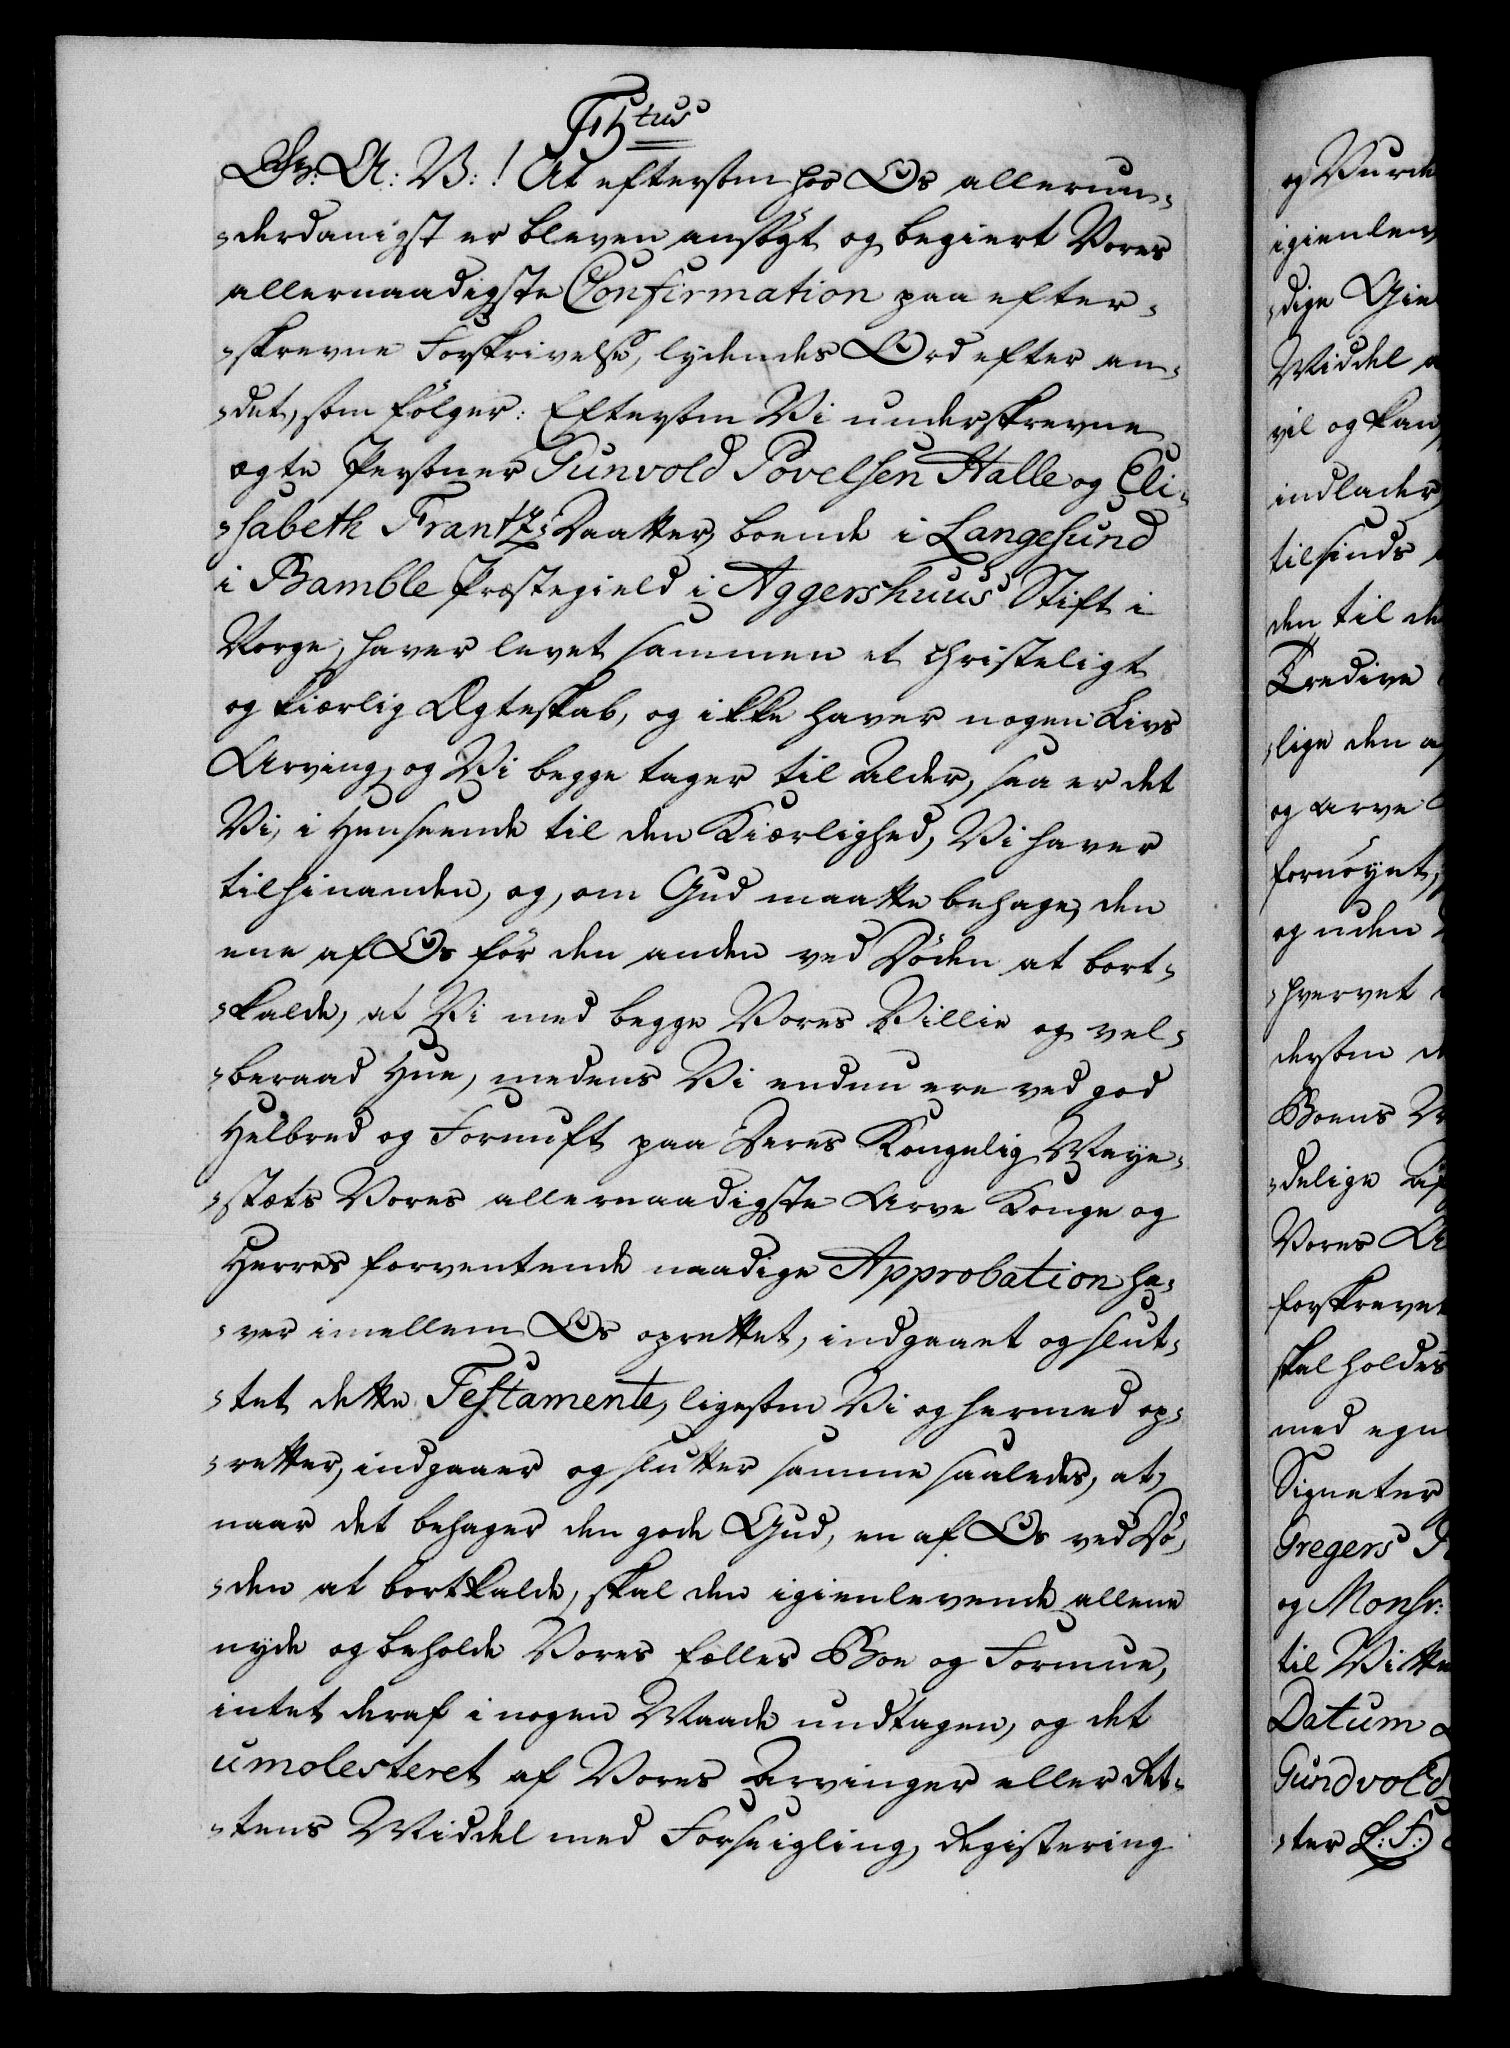 F 5tus
Chr: A: V: ! At eftersom hos Os allerun-
-derdanigst er bleven ansögt og begiert Vores
allernaadigste Confirmation paa efter-
-skrevne Forskrivelse, lydendes Ord efter an-
-det, som fölger: Eftersom Vi underskrevne
ægte Personer Gunvold Povelsen Halle og Eli-
-sabeth Frantz-Daatter, boende i Langesund
i Bamble Præstegield i Aggershuus Stift i
Norge, haver levet sammen et Christeligt
og kiærlig Ægteskab, og ikke haver nogen Livs
Arving, og Vi begge tager til Alder, saa er det
Vi, i Henseende til den Kiærlighed, Vi haver
til hinanden, og, om Gud maatte behage, den
ene af Os för den anden ved Döden at bort-
-kalde, at Vi med begge Vores Villie og vel-
-beraad Hue, medens Vi endnu ere ved god
Helbred og Fornuft paa Deres Kongelig Maye-
-stæts Vores allernaadigste Arve Konge og
Herres forventende naadige Approbation ha-
-ver imellem Os oprettet, indgaaet og slut-
-tet dette Testamente, ligesom Vi og hermed op-
-retter, indgaaer og slutter samme saaledes, at,
naar det behager den gode Gud, en af Os ved Dö-
-den at bortkalde, skal den igienlevende allene
nyde og beholde Vores fælles Boe og Formue,
intet deraf i nogen Maade undtagen, og det
umolesteret af Vores Arvinger eller Ret-
-tens Middel med Forseigling, Registering
og Vurde
igienlev
-dige Gie
Middel
vil og kan
indlader
tilsinds
den til de
Tredive
-lige den a
og Arve
fornöyet,
og uden
-hvervet
dersom
Boens
-delige Af
Vores A
forskrevet
skal holdes
med egn
Signeter
Gregers
og Monsr:
til Vitte
Datum
Gundvold
-ter L:S: